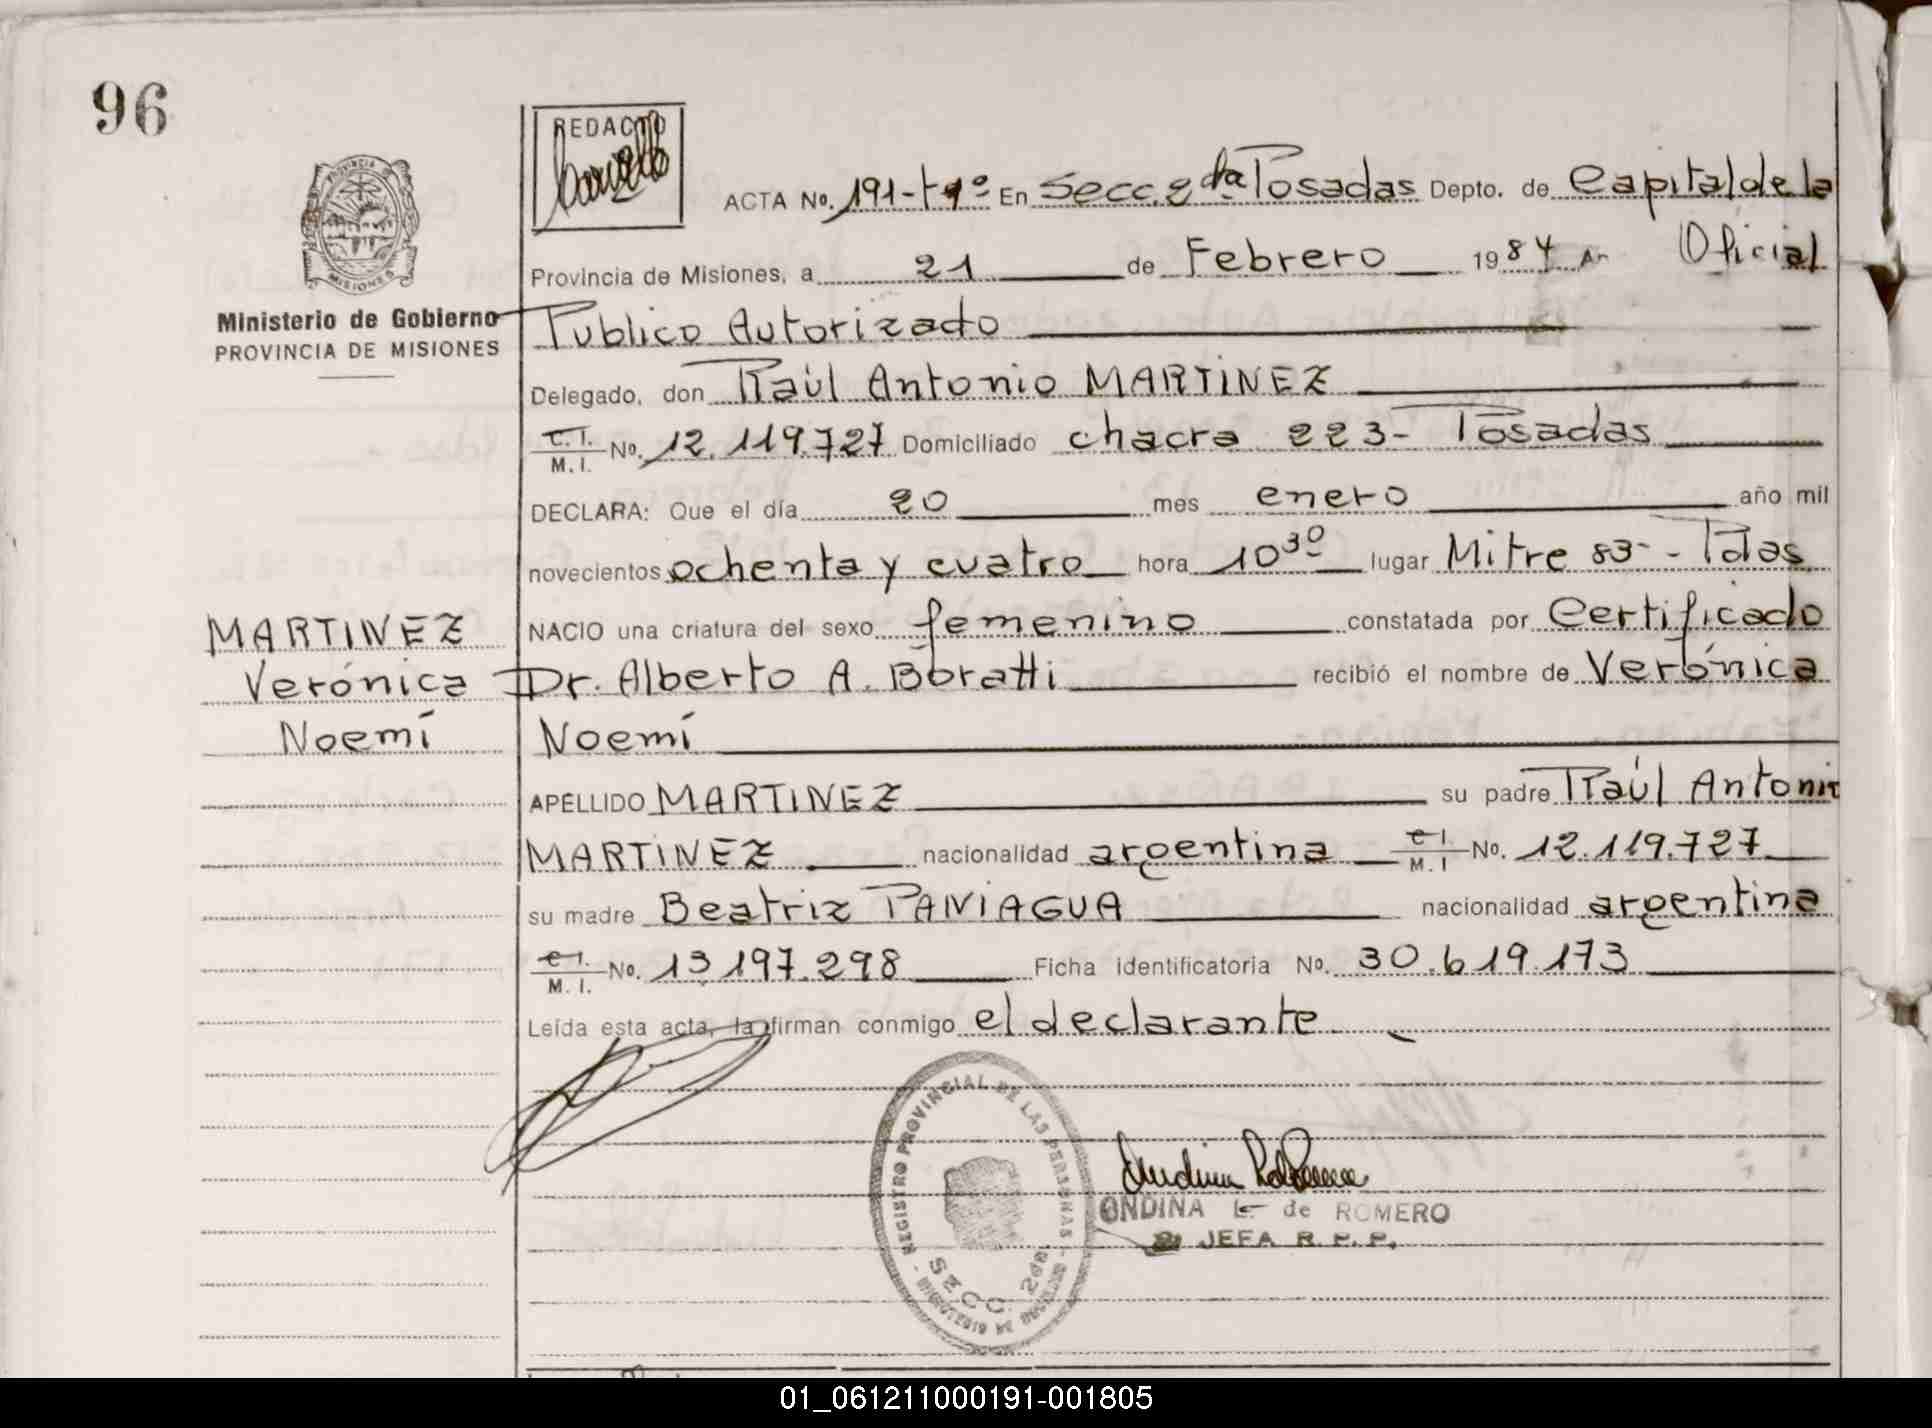 96
REDACTO
PROVINCIA
MISIONES
ACTA No. 191-tº1º En Secc. 2da Posadas Depto. de Capital de la
Provincia de Misiones, a 21 de Febrero 1984 An Oficial
Ministerio de Gobierno
PROVINCIA DE MISIONES
Publico Autorizado
Delegado, don Raúl Antonio MARTINEZ
C.I. M.I. No. 12.119.727 Domiciliado chacra 223- Posadas
DECLARA: Que el día 20 mes enero año mil
novecientos ochenta y cuatro hora 10³⁰ lugar Mitre 83 - Pdas
NACIO una criatura del sexo femenino constatada por Certificado
MARTINEZ
Verónica
Noemí
Dr. Alberto A. Boratti recibió el nombre de Verónica
Noemí
APELLIDO MARTINEZ su padre Raúl Antonio
MARTINEZ nacionalidad argentina C.I. M.I No. 12.119.727
su madre Beatriz PANIAGUA nacionalidad argentina
C.I. M.I. No. 13.197.298 Ficha identificatoria No. 30.619.173
Leída esta acta, la firman conmigo el declarante
REGISTRO PROVINCIAL DE LAS PERSONAS
SECC. 2da
ONDINA L. de ROMERO
JEFA R. P. P.
01_061211000191-001805